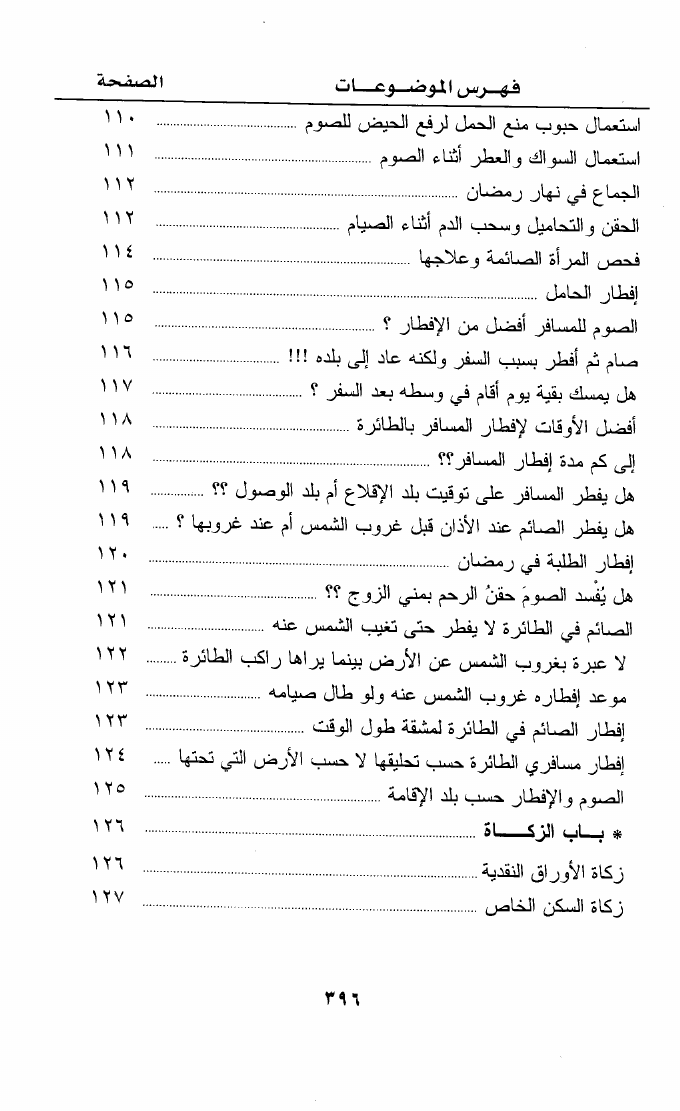 فهرس الموضوعات الصفحة
استعمال حبوب منع الحمل لرفع الحيض للصوم ١١٠
استعمال السواك والعطر أثناء الصوم ١١١
الجماع في نهار رمضان ١١٢
الحقن والتحاميل وسحب الدم أثناء الصيام ١١٢
فحص المرأة الصائمة وعلاجها ١١٤
إفطار الحامل ١١٥
الصوم للمسافر أفضل من الإفطار ؟ ١١٥
صام ثم أفطر بسبب السفر ولكنه عاد إلى بلده !!! ١١٦
هل يمسك بقية يوم أقام في وسطه بعد السفر ؟ ١١٧
أفضل الأوقات لإفطار المسافر بالطائرة ١١٨
إلى كم مدة إفطار المسافر؟؟ ١١٨
هل يفطر المسافر على توقيت بلد الإقلاع أم بلد الوصول ؟؟ ١١٩
هل يفطر الصائم عند الأذان قبل غروب الشمس أم عند غروبها ؟ ١١٩
إفطار الطلبة في رمضان ١٢٠
هل يُفْسد الصومَ حقنُ الرحم بمني الزوج ؟؟ ١٢١
الصائم في الطائرة لا يفطر حتى تغيب الشمس عنه ١٢١
لا عبرة بغروب الشمس عن الأرض بينما يراها راكب الطائرة ١٢٢
موعد إفطاره غروب الشمس عنه ولو طال صيامه ١٢٣
إفطار الصائم في الطائرة لمشقة طول الوقت ١٢٣
إفطار مسافري الطائرة حسب تحليقها لا حسب الأرض التي تحتها ١٢٤
الصوم والإفطار حسب بلد الإقامة ١٢٥
* بـاب الزكـــاة ١٢٦
زكاة الأوراق النقدية ١٢٦
زكاة السكن الخاص ١٢٧
٣٩٦